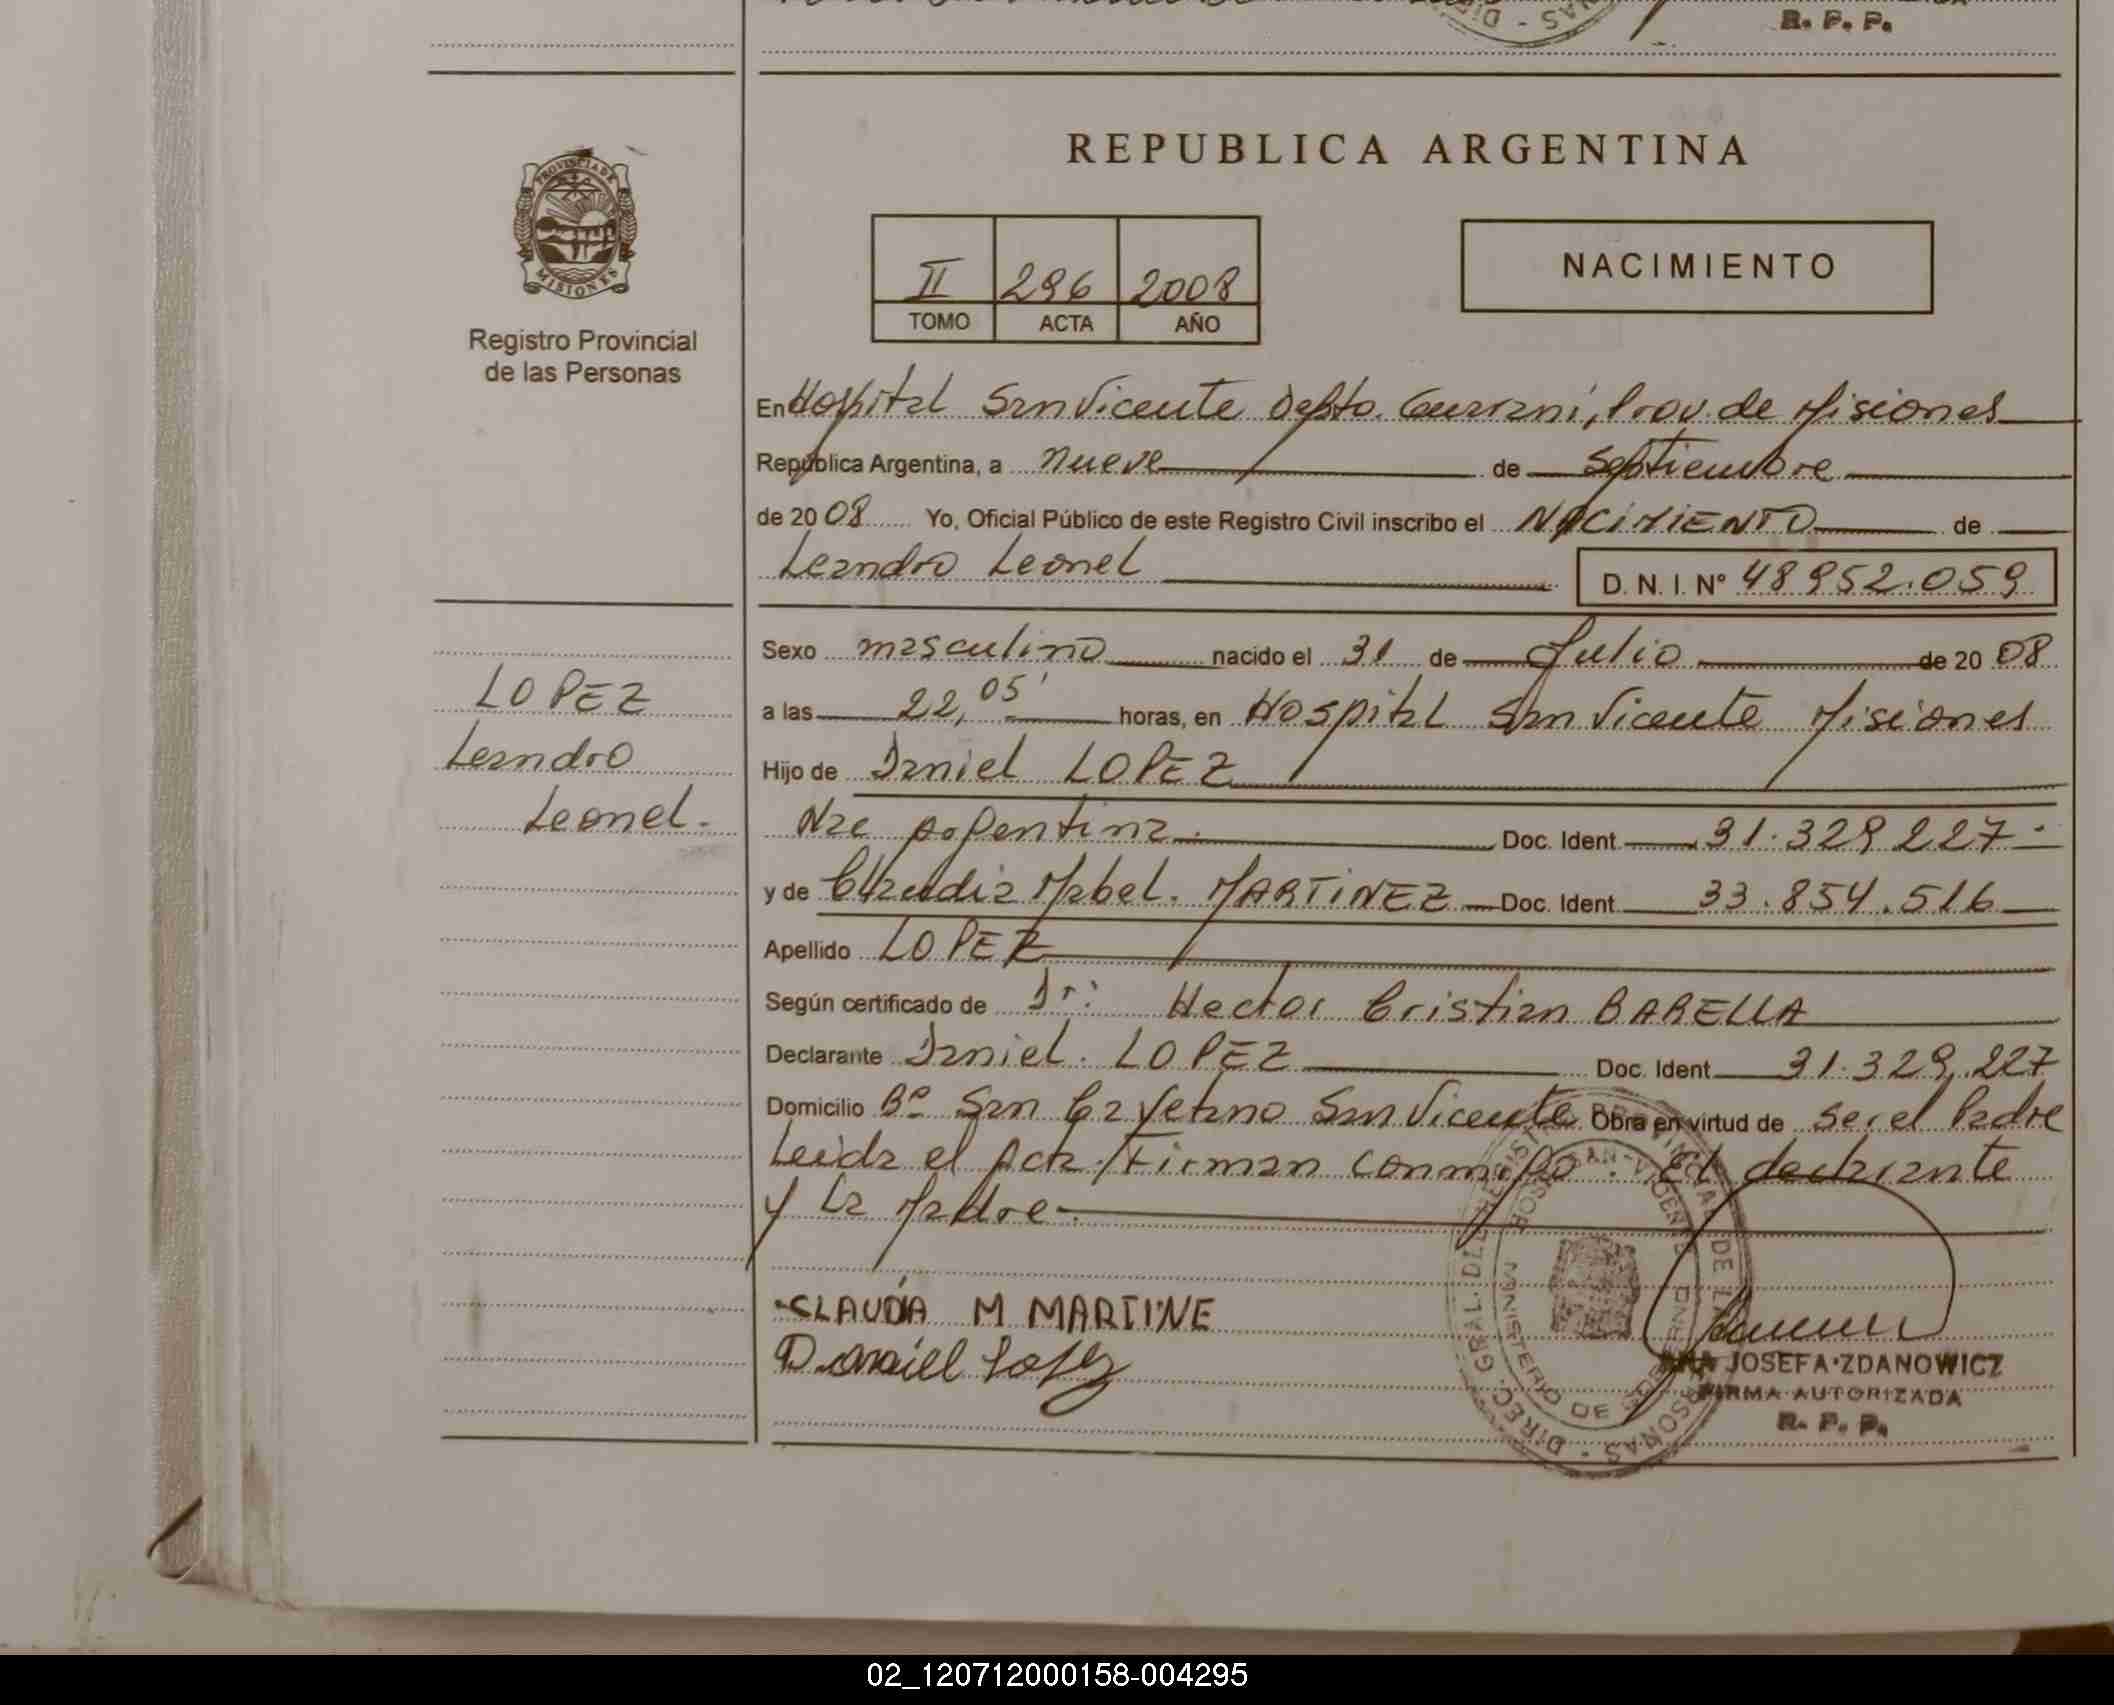 R. P. P.
PROVINCIA DE
MISIONES
Registro Provincial
de las Personas
REPUBLICA ARGENTINA
II 296 2008
TOMO ACTA AÑO
NACIMIENTO
En Hospital San Vicente Depto. Guarani, Prov. de Misiones
República Argentina, a nueve de Septiembre
de 20 08 Yo, Oficial Público de este Registro Civil inscribo el NACIMIENTO de
Leandro Leonel D. N. I. Nº 48952.059
Sexo masculino nacido el 31 de Julio de 20 08
a las 22,05' horas, en Hospital San Vicente Misiones
Hijo de Daniel LOPEZ
Nac Argentina. Doc. Ident 31.329.227.
y de Claudia Mabel. MARTINEZ Doc. Ident 33.854.516
Apellido LOPEZ
Según certificado de Dr: Hector Cristian BARELLA
Declarante Daniel. LOPEZ Doc. Ident 31.329.227
Domicilio Bº San Cayetano San Vicente Obra en virtud de Ser el Padre
Leida el Acta. Firman conmigo. El declarante
y La Madre.
LOPEZ
Leandro
Leonel.
CLAUDIA M MARTINE
Daniel Lopez
DIREC. GRAL. DEL REGISTRO PROVINCIAL DE LAS PERSONAS
HOSP. SAN VICENTE
MINISTERIO DE GOBIERNO
ANA JOSEFA ZDANOWICZ
FIRMA AUTORIZADA
R. P. P.
02_120712000158-004295